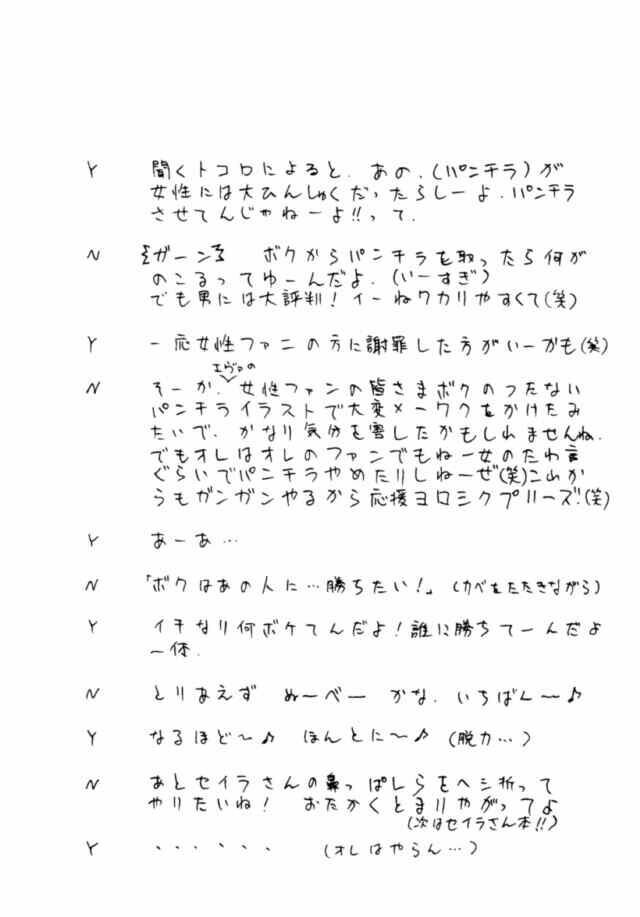 Y 聞くトコロによると、あの、(パンチラ)が
女性には大ひんしゅくだったらしーよ、パンチラ
させてんじゃねーよ!!って、
N ガーン ボクからパンチラを取ったら何が
のこるってゆーんだよ、(いーすぎ)
でも男には大評判! イーねワカリやすくて(笑)
Y 一応女性ファンの方に謝罪した方がいーかも(笑)
エヴァの
N そーか、女性ファンの皆さまボクのつたない
パンチライラストで大変メーワクをかけたみ
たいで、かなり気分を害したかもしれませんね、
でもオレはオレのファンでもねー女のたわ言
ぐらいでパンチラやめたりしねーぜ(笑)これか
らもガンガンやるから応援ヨロシクプリーズ!(笑)
Y あーあ…
N 「ボクはあの人に…勝ちたい!」(カベをたたきながら)
Y イキなり何ボケてんだよ!誰に勝ちてーんだよ
一体、
N とりあえず ぬ〜べ〜 かな、いちばん〜♪
Y なるほど〜♪ ほんとに〜♪ (脱力…)
N あとセイラさんの鼻っぱしらをヘシ折って
やりたいね! おたかくとまりやがってよ
(次はセイラさん本!!)
Y ・・・・・・ (オレはやらん…)